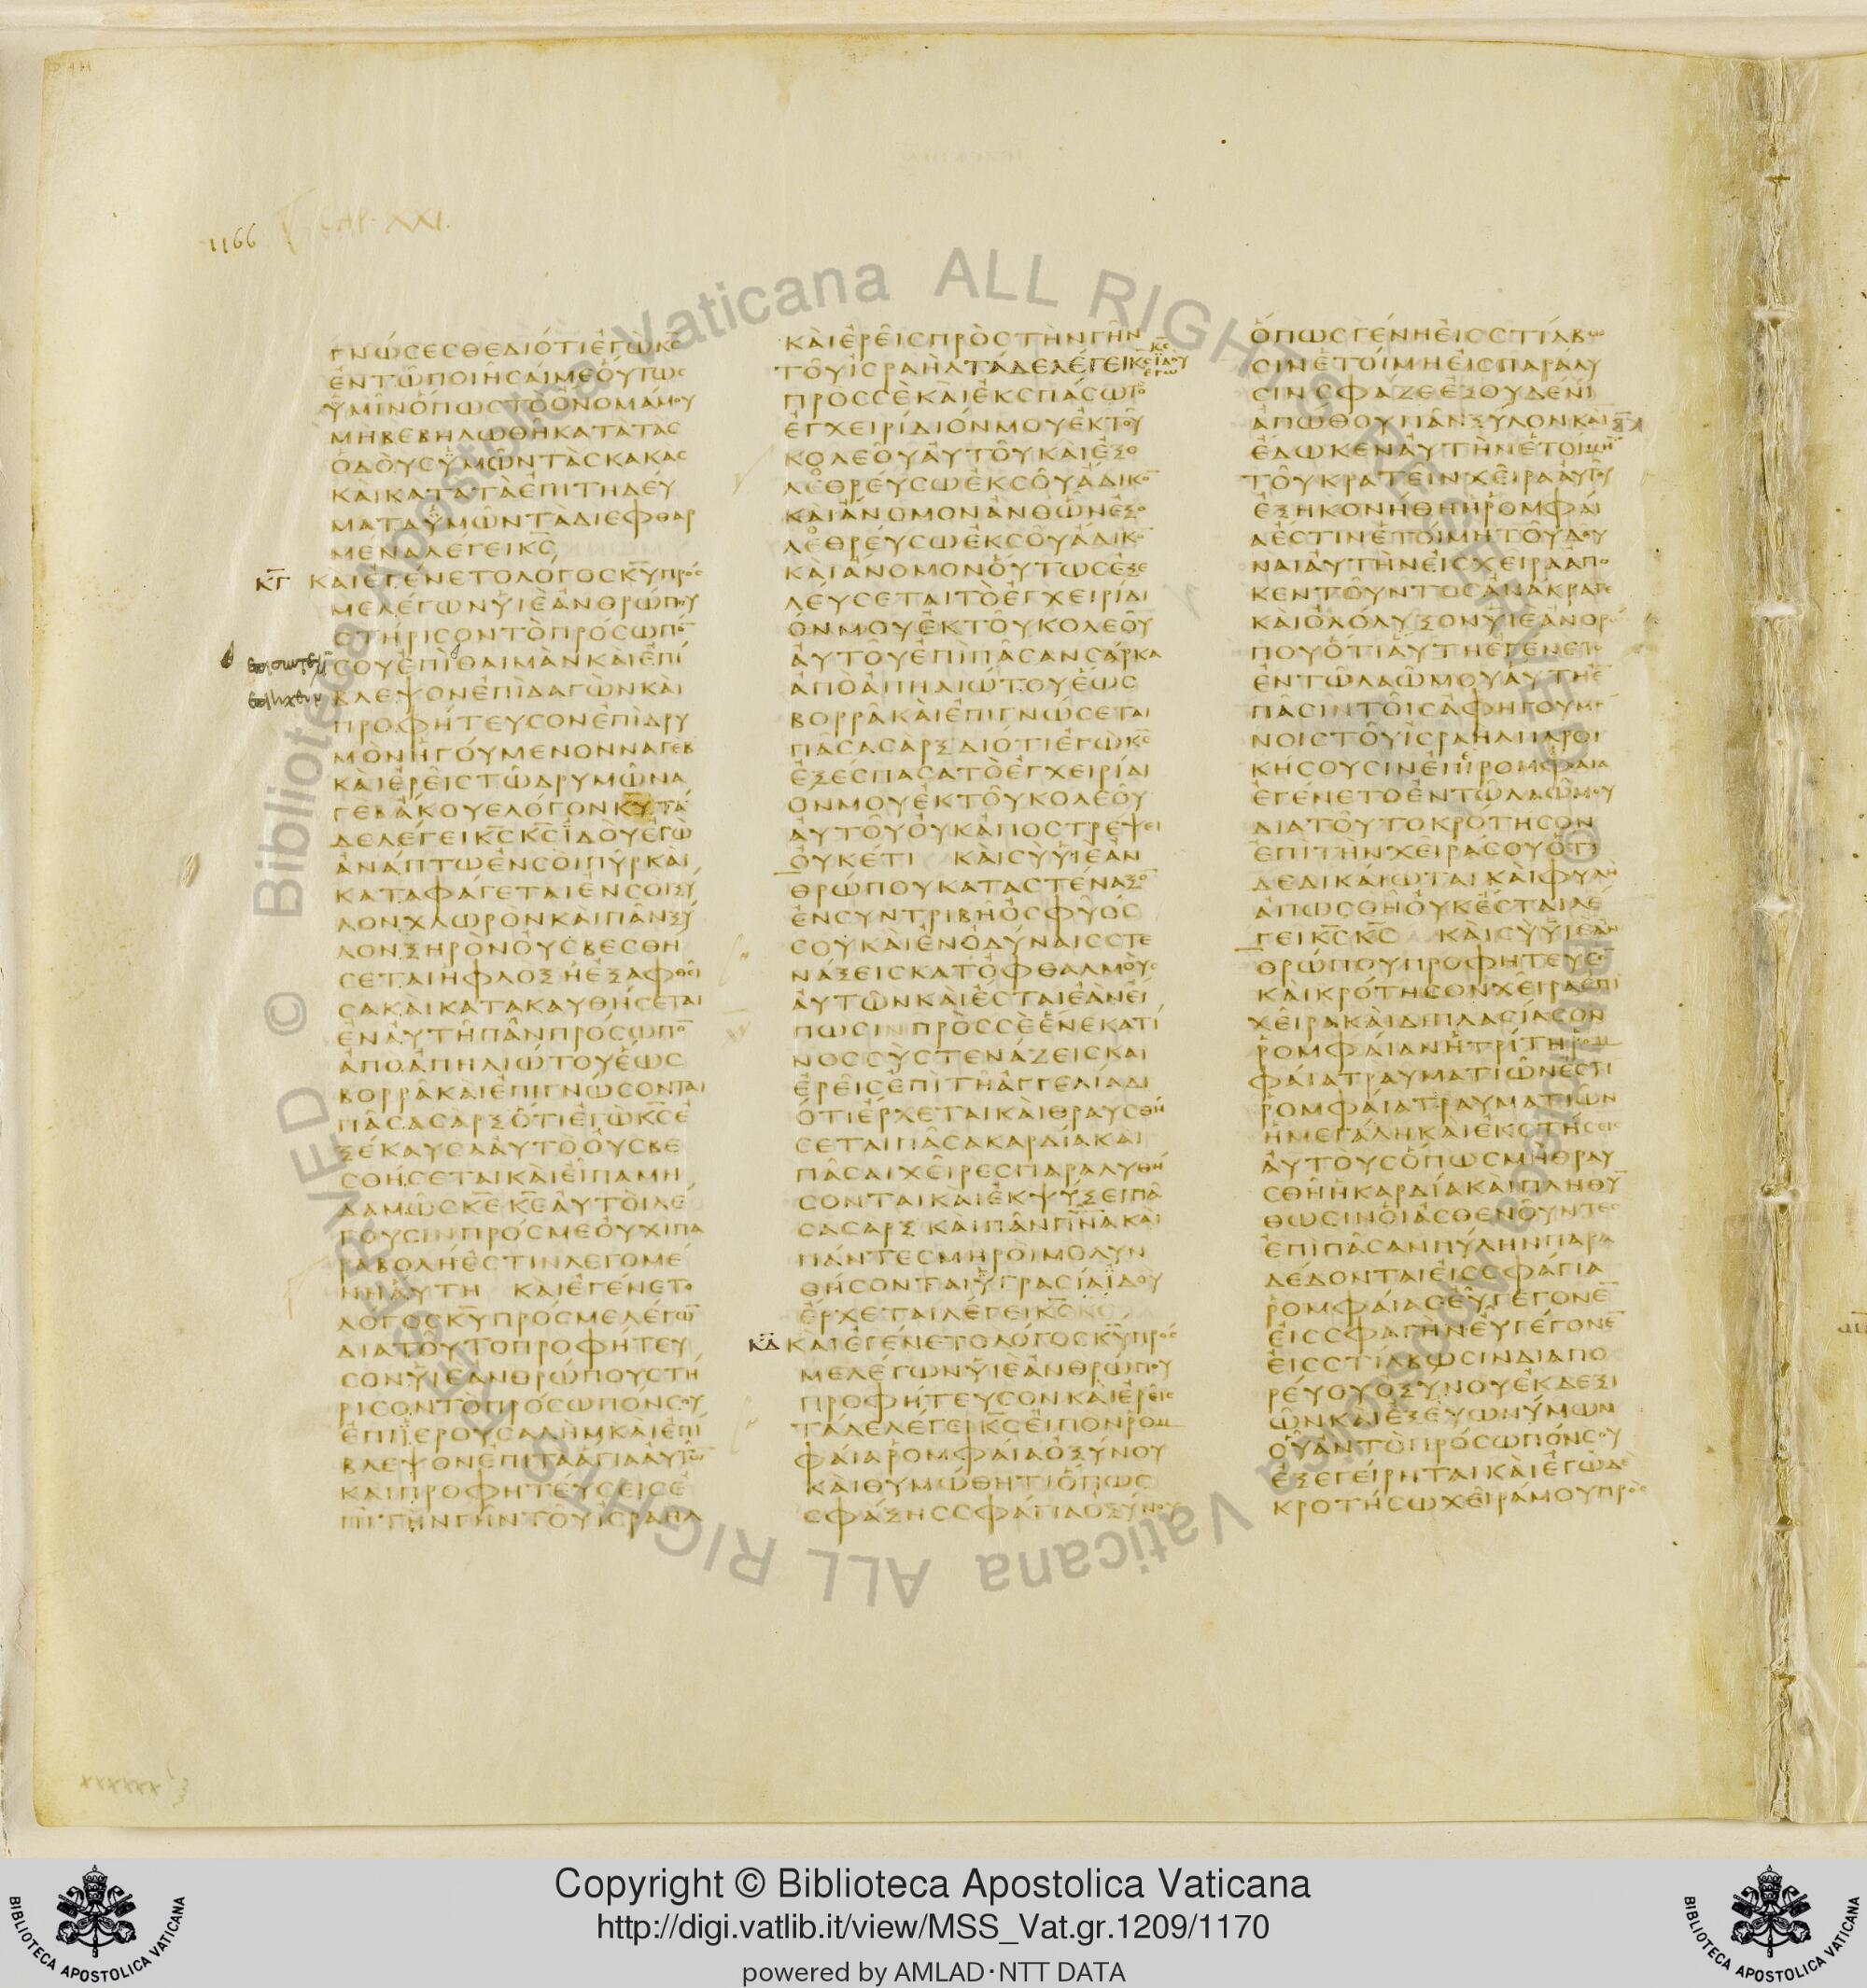 1166
ΓΝΩΣΕΣΘΕΔΙΟΤΙΕΓΩΚ̅Σ̅
ΕΝΤΩΠΟΙΗΣΑΙΜΕΟΥΤΩΣ
ΥΜΙΝΟΠΩΣΤΟΟΝΟΜΑΜΟΥ
ΜΗΒΕΒΗΛΩΘΗΚΑΤΑΤΑΣ
ΟΔΟΥΣΥΜΩΝΤΑΣΚΑΚΑΣ
ΚΑΙΚΑΤΑΤΑΕΠΙΤΗΔΕΥ
ΜΑΤΑΥΜΩΝΤΑΔΙΕΦΘΑΡ
ΜΕΝΑΛΕΓΕΙΚ̅Σ̅
Κ̅Γ̅ ΚΑΙΕΓΕΝΕΤΟΛΟΓΟΣΚ̅Υ̅ΠΡΟΣ
ΜΕΛΕΓΩΝΥΙΕΑΝΘΡΩΠΟΥ
ΣΤΗΡΙΣΟΝΤΟΠΡΟΣΩΠΟ̅
ΣΟΥΕΠΙΘΑΙΜΑΝΚΑΙΕΠΙ
ΒΛΕΨΟΝΕΠΙΔΑΓΩΝΚΑΙ
ΠΡΟΦΗΤΕΥΣΟΝΕΠΙΔΡΥ
ΜΟΝΗΓΟΥΜΕΝΟΝΝΑΓΕΒ
ΚΑΙΕΡΕΙΣΤΩΔΡΥΜΩΝΑ
ΓΕΒΑΚΟΥΕΛΟΓΟΝΚ̅Υ̅ΤΑ
ΔΕΛΕΓΕΙΚ̅Σ̅Κ̅Σ̅ΙΔΟΥΕΓΩ
ΑΝΑΠΤΩΕΝΣΟΙΠΥΡΚΑΙ
ΚΑΤΑΦΑΓΕΤΑΙΕΝΣΟΙΞΥ
ΛΟΝΧΛΩΡΟΝΚΑΙΠΑΝΞΥ
ΛΟΝΞΗΡΟΝΟΥΣΒΕΣΘΗ
ΣΕΤΑΙΗΦΛΟΞΗΕΞΑΦΘΕΙ
ΣΑΚΑΙΚΑΤΑΚΑΥΘΗΣΕΤΑΙ
ΕΝΑΥΤΗΠΑΝΠΡΟΣΩΠΟ̅
ΑΠΟΑΠΗΛΙΩΤΟΥΕΩΣ
ΒΟΡΡΑΚΑΙΕΠΙΓΝΩΣΟΝΤΑΙ
ΠΑΣΑΣΑΡΞΟΤΙΕΓΩΚ̅Σ̅Ε
ΞΕΚΑΥΣΑΑΥΤΟΟΥΣΒΕ
ΣΘΗΣΕΤΑΙΚΑΙΕΙΠΑΜΗ
ΔΑΜΩΣΚ̅Ε̅Κ̅Ε̅ΑΥΤΟΙΛΕ
ΓΟΥΣΙΝΠΡΟΣΜΕΟΥΧΙΠΑ
ΡΑΒΟΛΗΕΣΤΙΝΛΕΓΟΜΕ
ΝΗΑΥΤΗ ΚΑΙΕΓΕΝΕΤΟ
ΛΟΓΟΣΚ̅Υ̅ΠΡΟΣΜΕΛΕΓΩ̅
ΔΙΑΤΟΥΤΟΠΡΟΦΗΤΕΥ
ΣΟΝΥΙΕΑΝΘΡΩΠΟΥΣΤΗ
ΡΙΣΟΝΤΟΠΡΟΣΩΠΟΝΣΟΥ
ΕΠΙΙΕΡΟΥΣΑΛΗΜΚΑΙΕΠΙ
ΒΛΕΨΟΝΕΠΙΤΑΑΓΙΑΑΥΤΩ̅
ΚΑΙΠΡΟΦΗΤΕΥΣΕΙΣΕ
ΠΙΤΗΝΓΗΝΤΟΥΙΣΡΑΗΛ
ΚΑΙΕΡΕΙΣΠΡΟΣΤΗΝΓΗΝ
ΤΟΥΙΣΡΑΗΛΤΑΔΕΛΕΓΕΙΚ̅Σ̅ΙΔΟΥ
ΠΡΟΣΣΕΚΑΙΕΚΣΠΑΣΩΤΟ
ΕΓΧΕΙΡΙΔΙΟΝΜΟΥΕΚΤΟΥ
ΚΟΛΕΟΥΑΥΤΟΥΚΑΙΕΞΟ
ΛΕΘΡΕΥΣΩΕΚΣΟΥΑΔΙΚΟ̅
ΚΑΙΑΝΟΜΟΝΑΝΘΩΝΕΞΟ
ΛΕΘΡΕΥΣΩΕΚΣΟΥΑΔΙΚΟ̅
ΚΑΙΑΝΟΜΟΝΟΥΤΩΣΕΞΕ
ΛΕΥΣΕΤΑΙΤΟΕΓΧΕΙΡΙΔΙ
ΟΝΜΟΥΕΚΤΟΥΚΟΛΕΟΥ
ΑΥΤΟΥΕΠΙΠΑΣΑΝΣΑΡΚΑ
ΑΠΟΑΠΗΛΙΩΤΟΥΕΩΣ
ΒΟΡΡΑΚΑΙΕΠΙΓΝΩΣΕΤΑΙ
ΠΑΣΑΣΑΡΞΔΙΟΤΙΕΓΩΚ̅Σ̅
ΕΞΕΣΠΑΣΑΤΟΕΓΧΕΙΡΙΔΙ
ΟΝΜΟΥΕΚΤΟΥΚΟΛΕΟΥ
ΑΥΤΟΥΟΥΚΑΠΟΣΤΡΕΨΕΙ
ΟΥΚΕΤΙ ΚΑΙΣΥΥΙΕΑΝ
ΘΡΩΠΟΥΚΑΤΑΣΤΕΝΑΞΟ̅
ΕΝΣΥΝΤΡΙΒΗΟΣΦΥΟΣ
ΣΟΥΚΑΙΕΝΟΔΥΝΑΙΣΣΤΕ
ΝΑΞΕΙΣΚΑΤΟΦΘΑΛΜΟΥΣ
ΑΥΤΩΝΚΑΙΕΣΤΑΙΕΑΝΕΙ
ΠΩΣΙΝΠΡΟΣΣΕΕΝΕΚΑΤΙ
ΝΟΣΣΥΣΤΕΝΑΖΕΙΣΚΑΙ
ΕΡΕΙΣΕΠΙΤΗΑΓΓΕΛΙΑΔΙ
ΟΤΙΕΡΧΕΤΑΙΚΑΙΘΡΑΥΣΘΗ
ΣΕΤΑΙΠΑΣΑΚΑΡΔΙΑΚΑΙ
ΠΑΣΑΙΧΕΙΡΕΣΠΑΡΑΛΥΘΗ
ΣΟΝΤΑΙΚΑΙΕΚΨΥΞΕΙΠΑ
ΣΑΣΑΡΞΚΑΙΠΑΝΠ̅Ν̅Α̅ΚΑΙ
ΠΑΝΤΕΣΜΗΡΟΙΜΟΛΥΝ
ΘΗΣΟΝΤΑΙΥΓΡΑΣΙΑΙΔΟΥ
ΕΡΧΕΤΑΙΛΕΓΕΙΚ̅Σ̅
Κ̅Δ̅ ΚΑΙΕΓΕΝΕΤΟΛΟΓΟΣΚ̅Υ̅ΠΡΟΣ
ΜΕΛΕΓΩΝΥΙΕΑΝΘΡΩΠΟΥ
ΠΡΟΦΗΤΕΥΣΟΝΚΑΙΕΡΕΙΣ
ΤΑΔΕΛΕΓΕΙΚ̅Σ̅ΕΙΠΟΝΡΟΜ
ΦΑΙΑΡΟΜΦΑΙΑΟΞΥΝΟΥ
ΚΑΙΘΥΜΩΘΗΤΙΟΠΩΣ
ΣΦΑΞΗΣΣΦΑΓΙΑΟΞΥΝΟΥ
ΟΠΩΣΓΕΝΗΕΙΣΣΤΙΛΒΩ
ΣΙΝΕΤΟΙΜΗΕΙΣΠΑΡΑΛΥ
ΣΙΝΣΦΑΖΕΕΞΟΥΔΕΝΕΙ
ΑΠΩΘΟΥΠΑΝΞΥΛΟΝΚΑΙ
ΕΔΩΚΕΝΑΥΤΗΝΕΤΟΙΜΗ̅
ΤΟΥΚΡΑΤΕΙΝΧΕΙΡΑΑΥΤΟΥ
ΕΞΗΚΟΝΗΘΗΗΡΟΜΦΑΙ
ΑΕΣΤΙΝΕΤΟΙΜΗΤΟΥΔΟΥ
ΝΑΙΑΥΤΗΝΕΙΣΧΕΙΡΑΑΠΟ
ΚΕΝΤΟΥΝΤΟΣΑΝΑΚΡΑΓΕ
ΚΑΙΟΛΟΛΥΞΟΝΥΙΕΑΝΘΡΩ
ΠΟΥΟΤΙΑΥΤΗΕΓΕΝΕΤΟ
ΕΝΤΩΛΑΩΜΟΥΑΥΤΗΕ̅
ΠΑΣΙΝΤΟΙΣΑΦΗΓΟΥΜΕ
ΝΟΙΣΤΟΥΙΣΡΑΗΛΠΑΡΟΙ
ΚΗΣΟΥΣΙΝΕΠΙΡΟΜΦΑΙΑ
ΕΓΕΝΕΤΟΕΝΤΩΛΑΩΜΟΥ
ΔΙΑΤΟΥΤΟΚΡΟΤΗΣΟΝ
ΕΠΙΤΗΝΧΕΙΡΑΣΟΥΟΤΙ
ΔΕΔΙΚΑΙΩΤΑΙΚΑΙΕΙΦΥΛΗ
ΑΠΩΣΘΗΟΥΚΕΣΤΑΙΛΕ
ΓΕΙΚ̅Σ̅Κ̅Σ̅ ΚΑΙΣΥΥΙΕΑΝ
ΘΡΩΠΟΥΠΡΟΦΗΤΕΥΣΟ̅
ΚΑΙΚΡΟΤΗΣΟΝΧΕΙΡΑΕΠΙ
ΧΕΙΡΑΚΑΙΔΙΠΛΑΣΙΑΣΟΝ
ΡΟΜΦΑΙΑΝΗΤΡΙΤΗΡΟΜ
ΦΑΙΑΤΡΑΥΜΑΤΙΩΝΕΣΤΙ
ΡΟΜΦΑΙΑΤΡΑΥΜΑΤΙΩΝ
ΗΜΕΓΑΛΗΚΑΙΕΚΣΤΗΣΕΙΣ
ΑΥΤΟΥΣΟΠΩΣΜΗΘΡΑΥ
ΣΘΗΗΚΑΡΔΙΑΚΑΙΠΛΗΘΥ̅
ΘΩΣΙΝΟΙΑΣΘΕΝΟΥΝΤΕΣ
ΕΠΙΠΑΣΑΝΠΥΛΗΝΠΑΡΑ
ΔΕΔΟΝΤΑΙΕΙΣΣΦΑΓΙΑ
ΡΟΜΦΑΙΑΣΕΥΓΕΓΟΝΕ̅
ΕΙΣΣΦΑΓΗΝΕΥΓΕΓΟΝΕ̅
ΕΙΣΣΤΙΛΒΩΣΙΝΔΙΑΠΟ
ΡΕΥΟΥΟΞΥΝΟΥΕΚΔΕΞΙ
ΩΝΚΑΙΕΞΕΥΩΝΥΜΩΝ
ΟΥΑΝΤΟΠΡΟΣΩΠΟΝΣΟΥ
ΕΞΕΓΕΙΡΗΤΑΙΚΑΙΕΓΩΔΕ
ΚΡΟΤΗΣΩΧΕΙΡΑΜΟΥΠΡΟΣ
Copyright © Biblioteca Apostolica Vaticana
http://digi.vatlib.it/view/MSS_Vat.gr.1209/1170
powered by AMLAD·NTT DATA
BIBLIOTECA APOSTOLICA VATICANA
BIBLIOTECA APOSTOLICA VATICANA
© Biblioteca Apostolica Vaticana ALL RIGHTS RESERVED
© Biblioteca Apostolica Vaticana ALL RIGHTS RESERVED